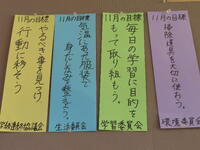 11月の目標
やるべき事を見つけ
行動に移そう
学級連絡協議会
11月の目標
気温にあった服装で
身だしなみを整えよう。
生活委員会
11月の目標
毎日の学習に目的を
もって取り組もう。
学習委員会
11月の目標
掃除道具を大切に使おう。
環境委員会